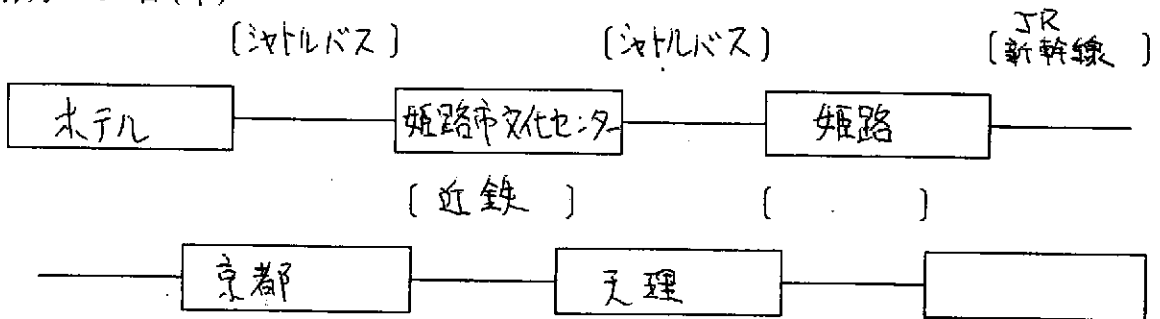 〔シャトルバス〕 〔シャトルバス〕 JR〔新幹線〕
ホテル 姫路市文化センター 姫路
〔近鉄〕 〔 〕
京都 天理